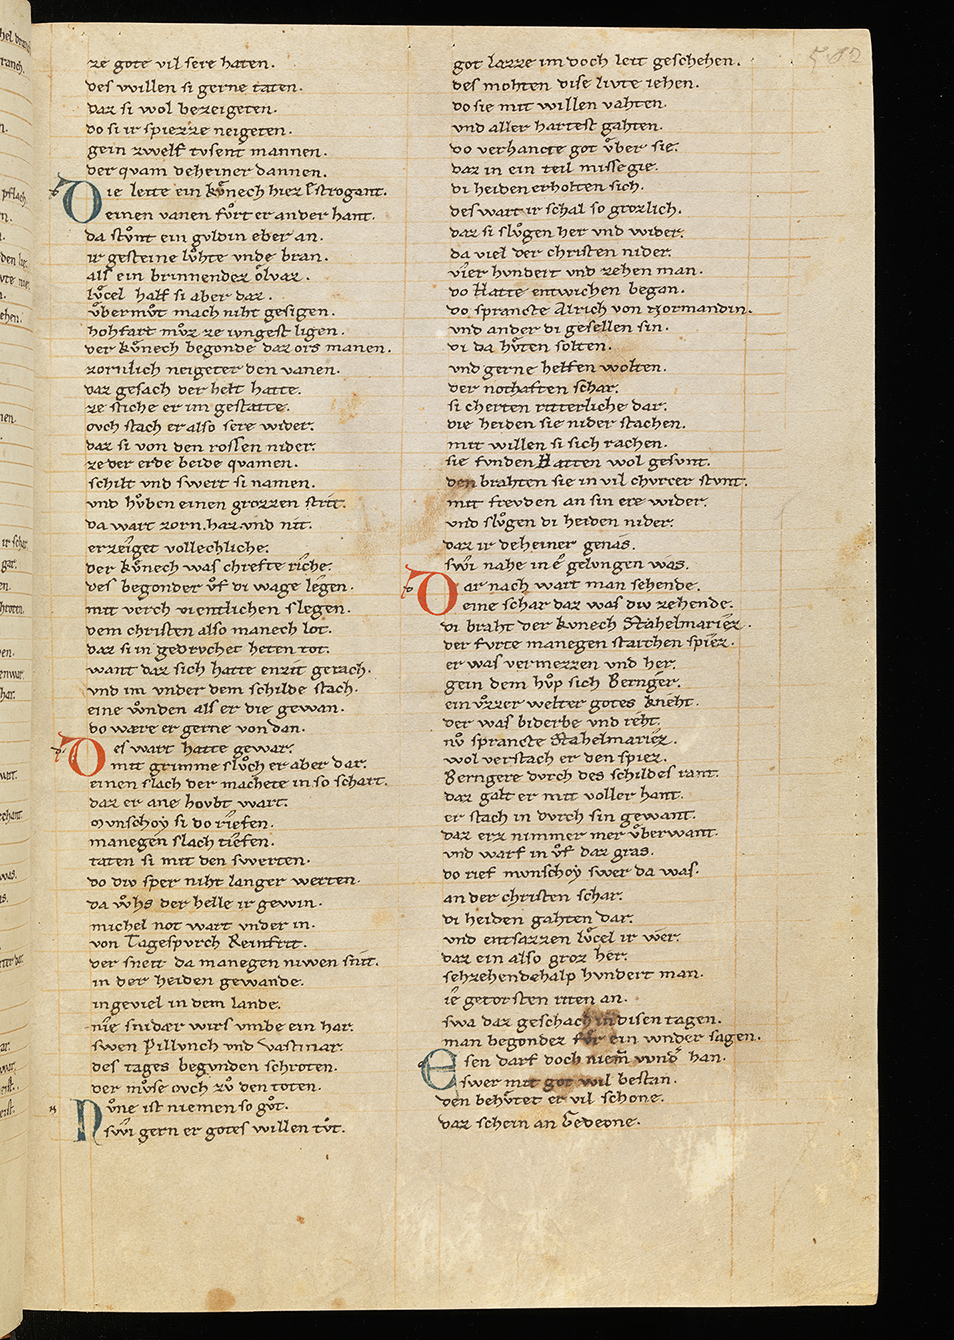 ze gote vil sere haten.
des willen si gerne taten.
daz si wol bezeigeten.
do si ir spiezze neigeten.
gein zwelf tvsent mannen.
der qvam deheiner dannen.
Die leite ein kvͦnech hiez Estrogant.
einen vanen fvͦrt er an der hant.
da stvͦnt ein gvldin eber an.
ir gesteine lvͦhte vnde bran.
als ein brinnendez olvaz.
lvͦcel half si aber daz.
vͦbermvͦt mach niht gesigen.
hohfart mvͦz ze ivngest ligen.
der kvͦnech begonde daz ors manen.
zornlich neigeter den vanen.
daz gesach der helt hatte.
ze stiche er im gestatte.
ovch stach er also sere wider.
daz si von den rossen nider.
ze der erde beide qvamen.
schilt vnd swert si namen.
vnd hvͦben einen grozzen strit.
da wart zorn. haz vnd nit.
erzeiget vollechliche.
der kvͦnech was chrefte riche.
des begonder vͦf di wage legen.
mit verch vientlichen slegen.
dem christen also manech lot.
daz si in gedrvchet heten tot.
want daz sich hatte enzit gerach.
vnd im vnder dem schilde stach.
eine wͦnden als er die gewan.
do wære er gerne von dan.
Des wart hatte gewar.
mit grimme slvͦch er aber dar.
einen slach der machete in so schart.
daz er ane hovbt wart.
Mvnschoy si do riefen.
manegen slach tiefen.
taten si mit den swerten.
do div sper niht langer werten.
da wͦhs der helle ir gewin.
michel not wart vnder in.
von Tagespvrch Reinfrit.
der sneit da manegen niwen snit.
in der heiden gewande.
in geviel in dem lande.
nie snidær wirs vmbe ein har.
swen Pillvnch vnd Vastmar.
des tages begvnden schroten.
der mvͦse ovch zvͦ den toten.
Nvͦne ist niemen so gvͦt.
swi gern er gotes willen tvͦt.
got lazze im doch leit geschehen.
des mohten dise livte iehen.
do sie mit willen vahten.
vnd aller hartest gahten.
do verhancte got vͦber sie.
daz in ein teil missegie.
di heiden erholten sich.
des wart ir schal so grozlich.
daz si slvͦgen her vnd wider.
da viel der christen nider.
vier hvndert vnd zehen man.
do Hatte entwichen began.
do sprancte Alrich von Normandin.
vnd ander di gesellen sin.
di da hvͦten solten.
vnd gerne helfen wolten.
der nothaften schar.
si cherten ritterliche dar.
die heiden sie nider stachen.
mit willen si sich rachen.
sie fvnden Hatten wol gesvnt.
den brahten sie in vil chvrcer stvnt.
mit frevden an sin ere wider.
vnd slvͦgen di heiden nider.
daz ir deheiner genas.
swi nahe in e gelvngen was.
Dar nach wart man sehende.
eine schar daz was div zehende.
di braht der kvnech Stahelmariez.
der fvrte manegen starchen spiez.
er was vermezzen vnd her.
gein dem hvͦp sich Bernger.
ein vͦzzer welter gotes kneht.
der was biderbe vnd reht.
nvͦ sprancte Stahelmariez.
wol verstach er den spiez.
Berngere dvrch des schildes rant.
daz galt er mit voller hant.
er stach in dvrch sin gewant.
daz erz nimmer mer vͦberwant.
vnd warf in vͦf daz gras.
do rief mvnschoy swer da was.
an der christen schar.
di heiden gahten dar.
vnd entsazzen lvͦcel ir wer.
daz ein also groz her.
sehzehendehalp hvndert man.
ie getorsten riten an.
swa daz geschach in disen tagen.
man begondez fvͦr ein wnder sagen.
Esen darf doch niem̄ wnd͛ han.
swer mit got wil bestan.
den behvͦtet er vil schone.
daz schein an Gedeone.